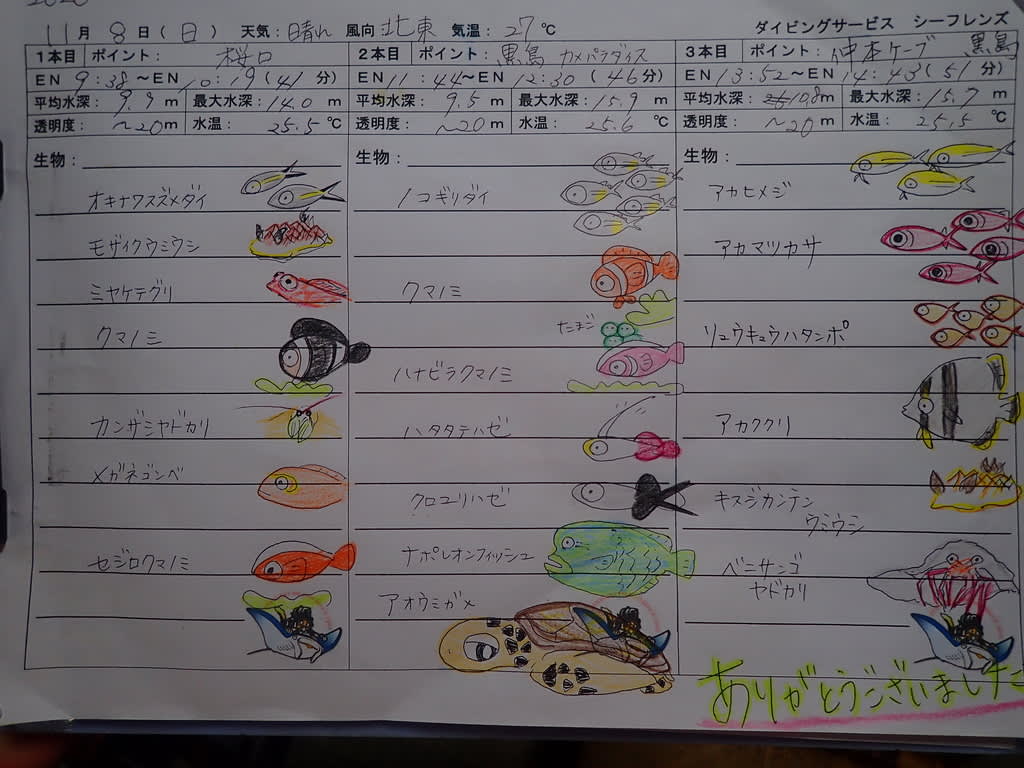 2020
11月 8日(日) 天気:晴れ 風向 北東 気温:27℃ ダイビングサービス シーフレンズ
1本目 ポイント: 桜口
EN 9:38～EN 10:19(41分)
平均水深:9.9m 最大水深:14.0m
透明度:～20m 水温:25.5℃
生物:
オキナワスズメダイ
モザイクウミウシ
ミヤケテグリ
クマノミ
カンザシヤドカリ
メガネゴンベ
セジロクマノミ
2本目 ポイント:黒島 カメパラダイス
EN 11:44～EN 12:30(46分)
平均水深:9.5m 最大水深:15.9m
透明度:～20m 水温:25.6℃
生物:
ノコギリダイ
クマノミ
たまご
ハナビラクマノミ
ハタタテハゼ
クロユリハゼ
ナポレオンフィッシュ
アオウミガメ
3本目 ポイント:仲本ケーブ 黒島
EN 13:52～EN 14:43(51分)
平均水深:10.8m 最大水深:15.7m
透明度:～20m 水温:25.5℃
生物:
アカヒメジ
アカマツカサ
リュウキュウハタンポ
アカククリ
キスジカンテン
ウミウシ
ベニサンゴ
ヤドカリ
ありがとうございました